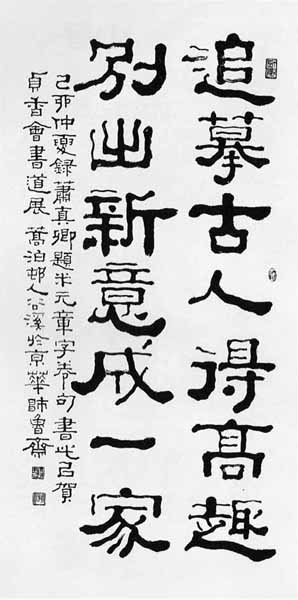 追摹古人得高趣
别出新意成一家
己卯仲夏録蕭真卿題米元章字卷句書此以賀
貞香會書道展 萬泊邨人谷溪於京華師魯齋